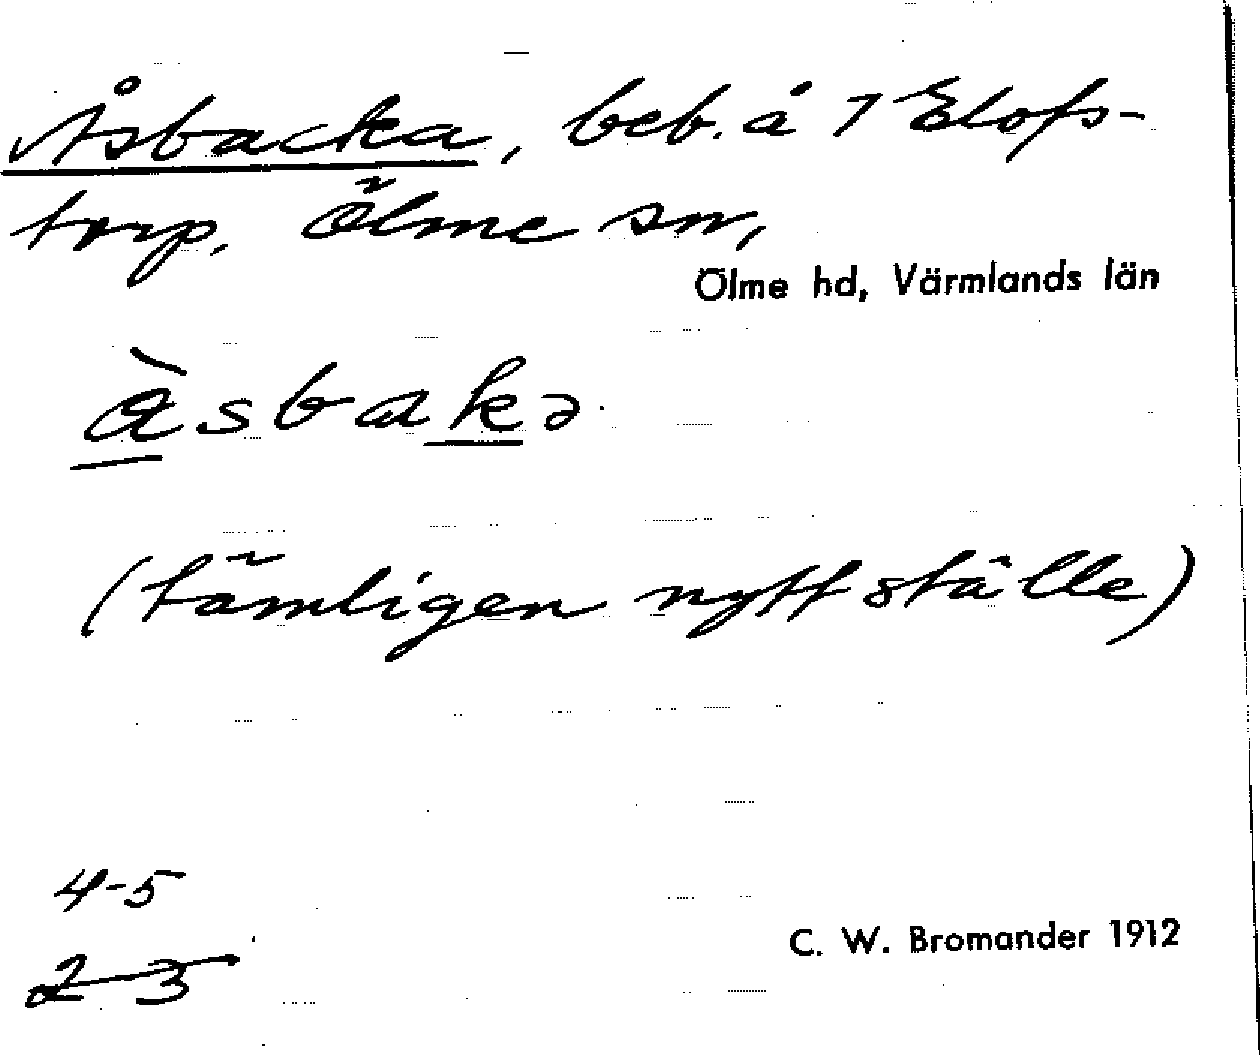 Åsbacka, beb. å 7 Elofs-
torp, Ölme sn,
Ölme hd, Värmlands län
à̱sbaḵə
(tämligen nytt ställe)
4-5
2-3
C. W. Bromander 1912